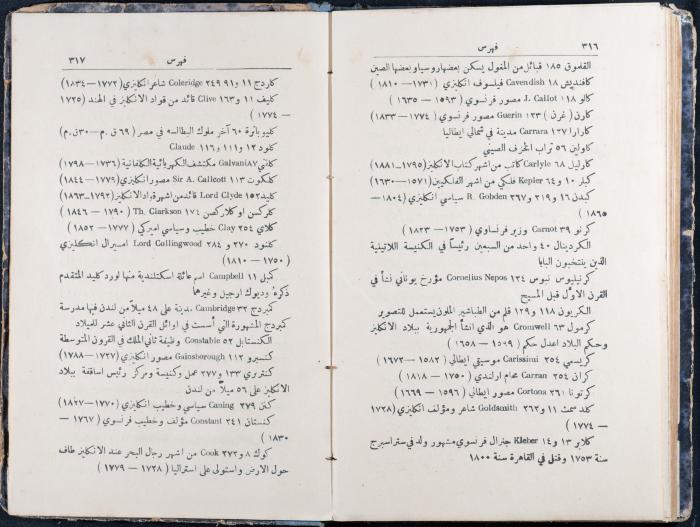 ٣١٦ فهرس
القلموق ١٨٥ قبائل من المغول يسكن بعضها روسيا وبعضها الصين
كافنديش ١٨ Cavendish فيلسوف انكليزي (١٧٣١ — ١٨١٠)
كالو ١١٨ J. Callot مصور فرنسوي (١٥٩٣ — ١٦٣٥)
كارن (غرن) ١٢٣ Guerin مصور فرنسوي (١٧٧٤ — ١٨٣٣)
كارارا ١٣٧ Carrara مدينة في شمالي ايطاليا
كاولين ٥٦ تراب الخزف الصيني
كارليل ٦٨ Carlyle كاتب من اشهر كتاب الانكليز (١٧٩٥ـ١٨٨١)
كبلر ١٠ و٦٤ Kepler فلكي من اشهر الفلكيين (١٥٧١—١٦٣٠)
كبدن ١٦ و٢١٩ و٢٦٧ R. Gobden سياسي انكليزي (١٨٠٤—
١٨٦٥)
كرنو ٣٩ Carnot وزير فرنساوي (١٧٥٣ — ١٨٢٣)
الكردينال ٤٠ واحد من السبعين رئيسًا في الكنيسة اللاتينية
الذين ينتخبون البابا
كرنيليوس نبوس ١٢٤ Cornelius Nepos مؤرخ يوناني نشأ في
القرن الاوَّل قبل المسيح
الكريون ١١٨ و١٢٩ قلم من الطباشير الملون يستعمل للتصوير
كرمول ٦٣ Cromwell هو الذي انشأ الجمهورية ببلاد الانكليز
وحكم البلاد اعدل حكم (١٥٠٩ — ١٦٥٨)
كريسمي ٢٥٤ Carissimi موسيقي ايطالي (١٥٨٢ — ١٦٧٢)
كران ٢٥٤ Carran محام ارلندي (١٧٥٠ — ١٨١٨)
كرتونا ٢٦١ Cortona مصور ايطالي (١٥٩٦ — ١٦٦٩)
كلد سمث ١١ و٢٦٢ Goldsmith شاعر ومؤلف انكليزي (١٧٢٨
— ١٧٧٤)
كلابر ١٣ و١٤ Kleber جنرال فرنسوي مشهور ولد في ستراسبرج
سنة ١٧٥٣ وقتل في القاهرة سنة ١٨٠٠
فهرس ٣١٧
كلردج ١١ و٩١ و٢٤٩ Coleridge شاعر انكليزي (١٧٧٢—١٨٣٤)
كليف ١١ و١٦٣ Clive قائد من قواد الانكليز في الهند (١٧٢٥
— ١٧٧٤)
كليوباترة ٦٠ آخر ملوك البطالسه في مصر (٦٩ ق.م—٣٠ق.م)
كلود ١٢ و١١١ و١١٦ Claude
كلفني ٨٧ Galvani مكتشف الكهربائية الكلفانية (١٧٣٦—١٧٩٨)
كلكوت ١١٣ Sir A. Callcott مصور انكليزي (١٧٧٩—١٨٤٤)
كليد ١٥٢ Lord Clyde قائد من اشهر قواد الانكليز (١٧٩٢ـ١٨٦٣)
كلركسن او كلاركصن ١٧٤ Th. Clarkson (١٧٩٠ — ١٨٤٦)
كلاي ٢٥٤ Clay خطيب وسياسي اميركي (١٧٧٧ — ١٨٥٢)
كلنود ٢٧٠ و ٢٨٤ Lord Collingwood اميرال انكليزي
(١٧٥٠ — ١٨١٠)
كمبل ١١ Campbell اسم عائلة اسكتلندية منها لورد كليد المتقدم
ذكرهُ وديوك ارجيل وغيرهما
كمبردج ٣٢ Cambridge مدينة على ٤٨ ميلًا من لندن فيها مدرسة
كمبردج المشهورة التي أسست في اوائل القرن الثاني عشر للميلاد
الكنستابل ٥٢ Constable وظيفة ثاني الملك في القرون المتوسطة
كنسبرو ١١٢ Gainsborough مصور انكليزي (١٧٢٧—١٧٨٨)
كنتربري ١٣٣ و٢٧٧ عمل وكنيسة ومركز رئيس اساقفة ببلاد
الانكليز على ٥٦ ميلًا من لندن
كنن ٢٧٩ Caning سياسي وخطيب انكليزي (١٧٧٠—١٨٢٧)
كنستان ٢٤١ Constant مؤلف وخطيب فرنسوي (١٧٦٧ —
١٨٣٠)
كوك ٨ و٢٧٢ Cook من اشهر رجال البحر عند الانكليز طاف
حول الارض واستولى على استراليا (١٧٢٨ — ١٧٧٩)